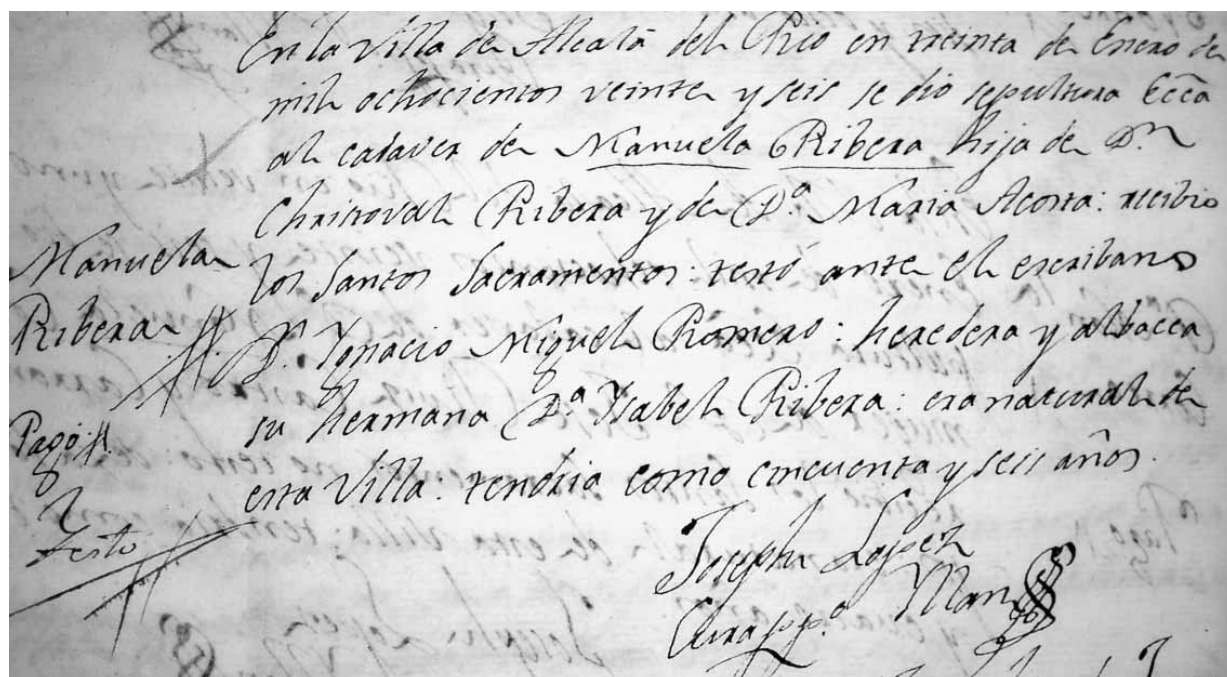 En la Villa de Alcalá del Rio en treinta de Enero de
mil ochocientos veinte y seis se dio sepultura Ecca
al cadaver de Manuela Ribera hija de Dn
Christoval Ribera y de Da. Maria Acosta: recibio
Manuela
los Santos Sacramentos: testó ante el escribano
Ribera
Dn. Ygnacio Miguel Romero: heredera y albacea
su hermana Da. Ysabel Ribera: era natural de
Pagó
esta Villa: tendria como cincuenta y seis años.
Testo
Joseph Lopez
Cura